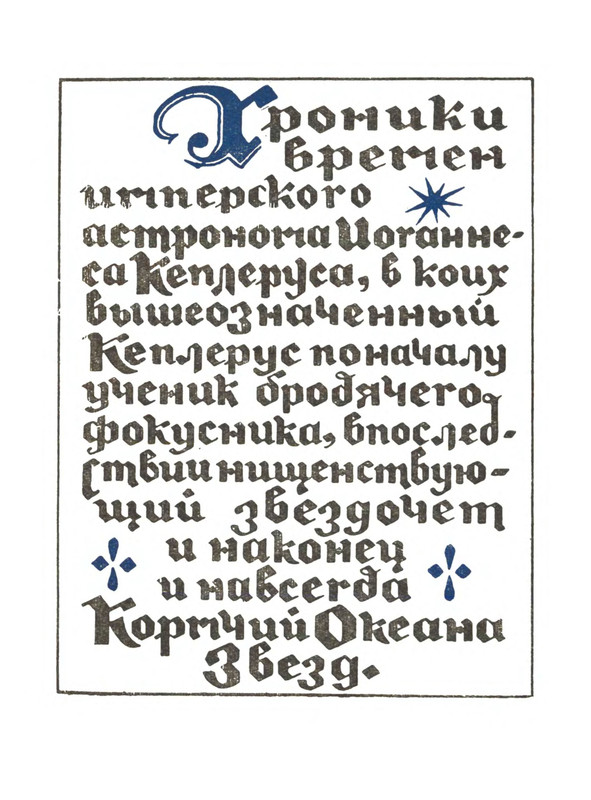 Хроники
времен
имперского
астронома Иоганне-
са Кеплеруса, в коих
вышеозначенный
Кеплерус поначалу
ученик бродячего
фокусника, впослед-
ствии нищенствую-
щий звёздочет
и наконец
и навсегда
Кормчий Океана
Звезд.